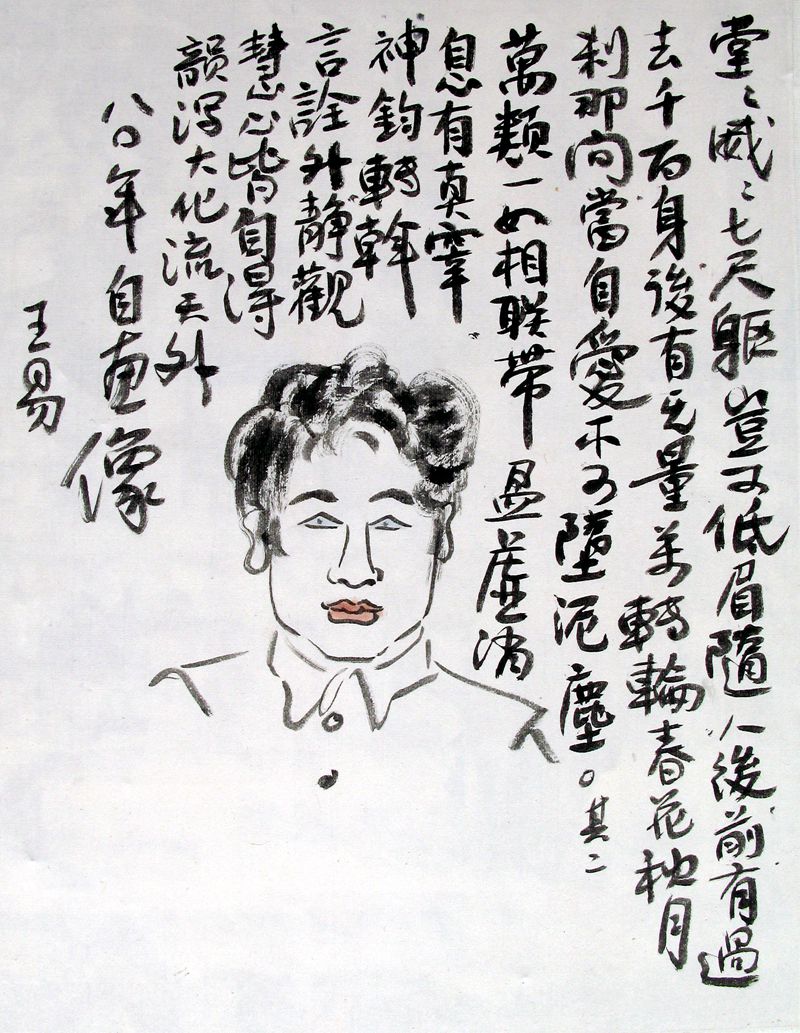 堂〻威〻七尺軀豈可低眉隨人後前有過
去千百身後有无量劫轉輪春花秋月
刹那间當自愛不可墮泥塵。其二
萬類一如相联帶盈虛消
息有真宰
神鈞轉斡
言詮外静觀
慧心皆自得
韻深大化流天外
八〇年自画像
王易